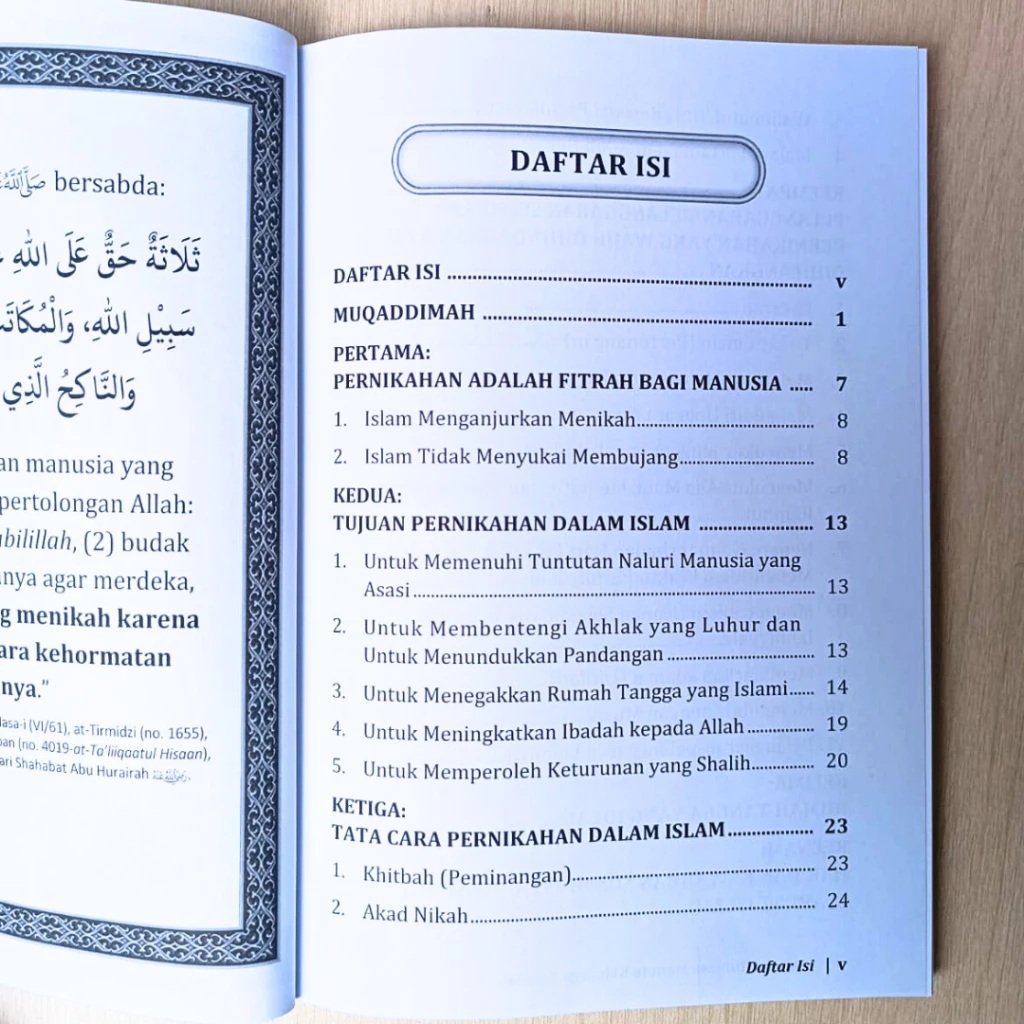 ﷺ bersabda:
ثَلَاثَةٌ حَقٌّ عَلَى اللهِ
سَبِيْلِ اللهِ، وَالْمُكَاتَبُ
وَالنَّاكِحُ الَّذِي
an manusia yang
pertolongan Allah:
abilillah, (2) budak
nya agar merdeka,
g menikah karena
ara kehormatan
nya."
Nasa-i (VI/61), at-Tirmidzi (no. 1655),
ban (no. 4019-at-Ta'liiqaatul Hisaan),
ari Shahabat Abu Hurairah
DAFTAR ISI
DAFTAR ISI ........ v
MUQADDIMAH ........ 1
PERTAMA:
PERNIKAHAN ADALAH FITRAH BAGI MANUSIA ..... 7
1. Islam Menganjurkan Menikah........ 8
2. Islam Tidak Menyukai Membujang........ 8
KEDUA:
TUJUAN PERNIKAHAN DALAM ISLAM ........ 13
1. Untuk Memenuhi Tuntutan Naluri Manusia yang
Asasi ........ 13
2. Untuk Membentengi Akhlak yang Luhur dan
Untuk Menundukkan Pandangan ........ 13
3. Untuk Menegakkan Rumah Tangga yang Islami...... 14
4. Untuk Meningkatkan Ibadah kepada Allah ........ 19
5. Untuk Memperoleh Keturunan yang Shalih........ 20
KETIGA:
TATA CARA PERNIKAHAN DALAM ISLAM........ 23
1. Khitbah (Peminangan)........ 23
2. Akad Nikah ........ 24
Daftar Isi | v